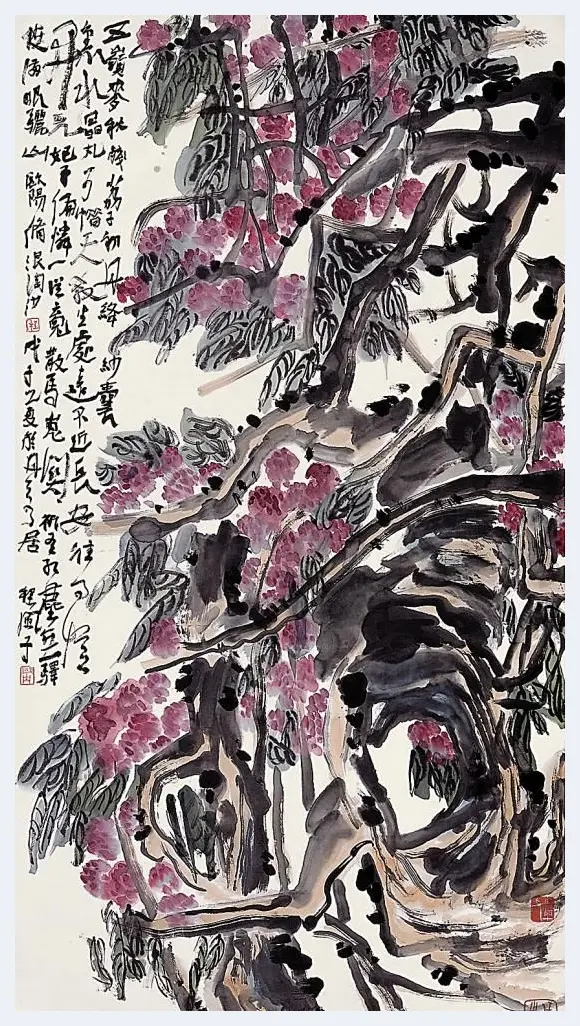 五嶺麥秋殘荔子初丹絳紗囊
裏水晶丸可惜天教生處遠不近長安往事憶
開元妃子偏憐一從魂散馬嵬關祇有紅塵無驛
使滿眼驪山歐陽脩浪淘沙 戊之夏於丹